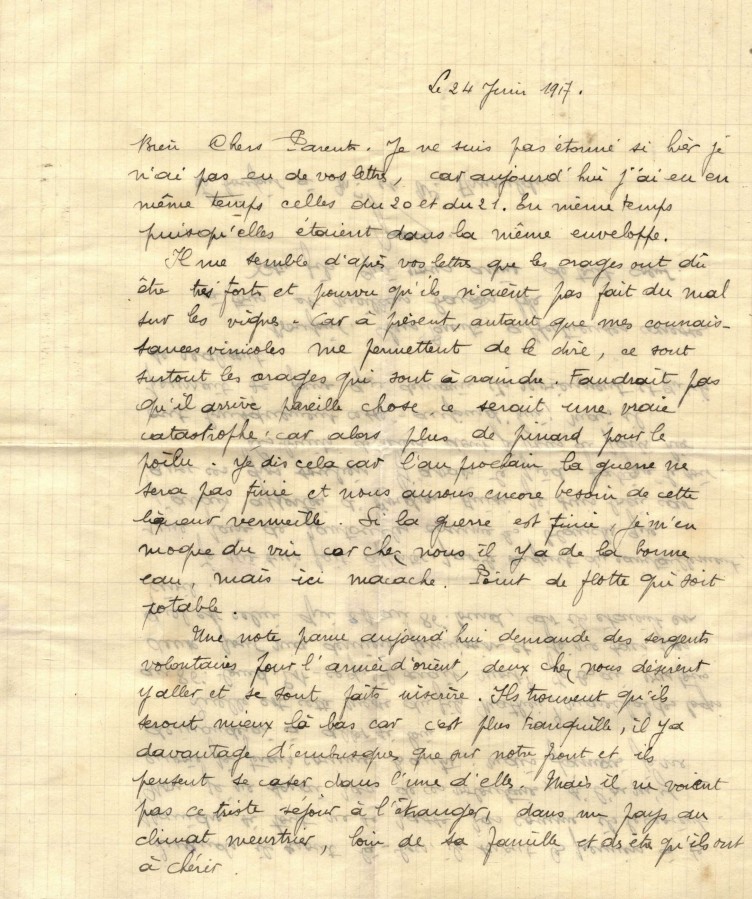 Le 24 Juin 1917.
Bien Chers Parents. Je ne suis pas étonné si hier je
n'ai pas eu de vos lettres, car aujourd'hui j'ai eu en
même temps celles du 20 et du 21. En même temps
puisqu'elles étaient dans la même enveloppe.
Il me semble d'après vos lettres que les orages ont dû
être très forts et pourvu qu'ils n'aient pas fait du mal
sur les vignes. Car à présent, autant que mes connais-
sances vinicoles me permettent de le dire, ce sont
surtout les orages qui sont à craindre. Faudrait pas
qu'il arrive pareille chose ce serait une vraie
catastrophe, car alors plus de pinard pour le
poilu. Je dis cela car l'an prochain la guerre ne
sera pas finie et nous aurons encore besoin de cette
liqueur vermeille. Si la guerre est finie, je m'en
moque du vin car chez nous il y a de la bonne
eau, mais ici macache. Point de flotte qui soit
potable.
Une note parue aujourd'hui demande des sergents
volontaires pour l'armée d'orient, deux chez nous désirent
y aller et se sont faits inscrire. Ils trouvent qu'ils
seront mieux là bas car c'est plus tranquille, il y a
davantage d'embusques que sur notre front et ils
pensent se caser dans l'une d'elles. Mais il ne voient
pas ce triste séjour à l'étranger, dans un pays au
climat meurtrier, loin de sa famille et qu'ils ont
à chérir.